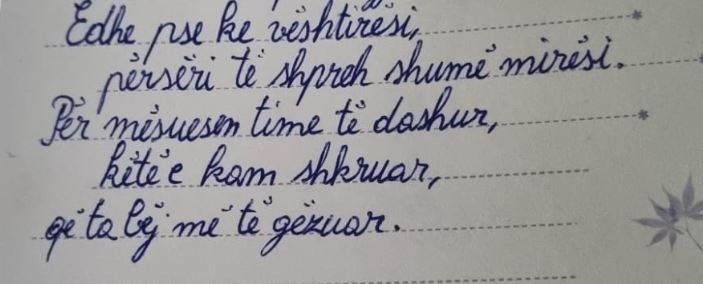 Edhe pse ke vështirësi,
përsëri të shpreh shumë mirësi.
Për mësuesen time të dashur,
këtë e kam shkruar,
që ta bëj më të gëzuar.